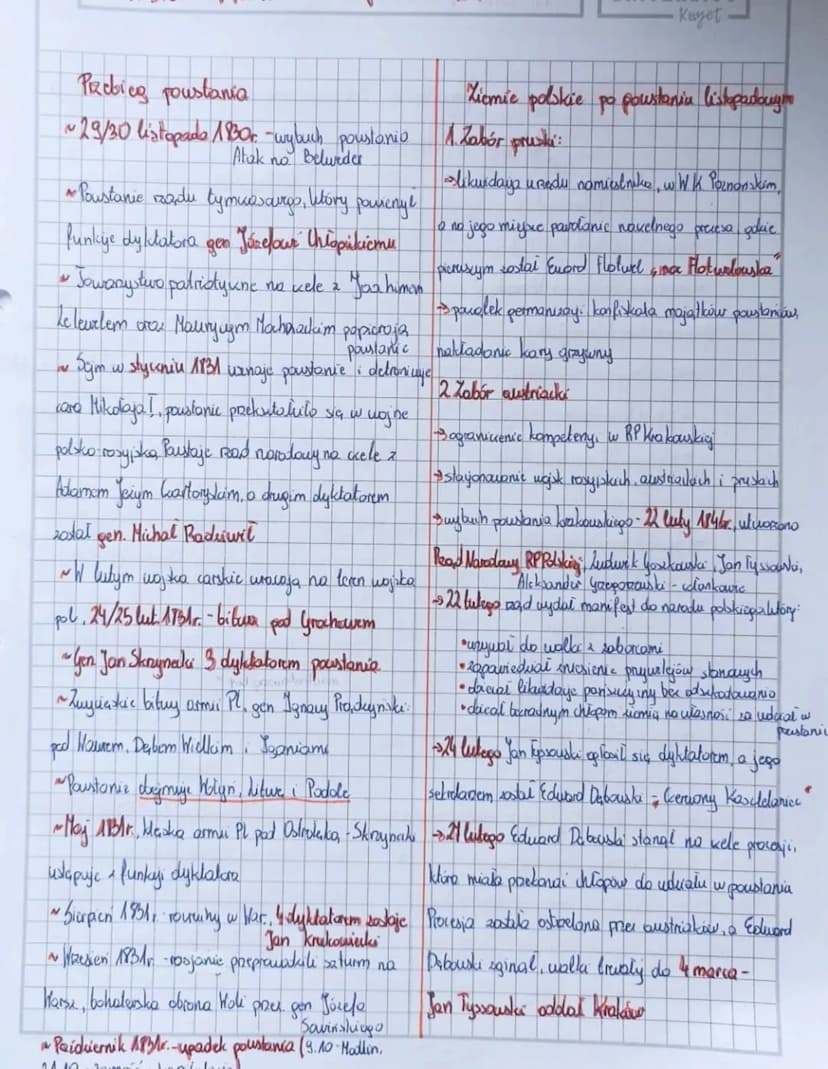 Kuyot
Przebieg powstania
~29/30 listopada 1830r. - wybuch powstania
Atak na Belweder
~Powstanie rządu tymczasowego, który powierzył
funkcje dyktatora gen Józefowi Chłopickiemu
~Towarzystwo patriotyczne na czele z Joachimem
Lelewelem oraz Maurycym Mochnackim popierają
powstanie
~Sejm w styczniu 1831 uznaje powstanie i detronizuje
cara Mikołaja I, powstanie przekształciło się w wojne
polsko-rosyjską, Powstaje rząd narodowy na czele z
Adamem Jerzym Czartoryskim, a drugim dyktatorem
został gen. Michał Radziwił
~W lutym wojska carskie wracają na teren wojska
pol. 24/25 lut 1831r. - bitwa pod Grochowem
~Gen Jan Skrzynecki 3 dyktatorem powstania
~Zwycięskie bitwy armii PL. gen Ignacy Prądzyński:
pod Wawrem, Dębem Wielkim i Iganiami
~Powstanie dejmuje Wołyń, Litwe i Podole
~Maj 1831r., klęska armii PL pod Ostrołęką - Skrzynecki
ustępuje z funkcji dyktatora
~Sierpień 1831r. rozruchy w War. 4 dyktatorem zostaje
Jan Krukowiecki
~Wrzesień 1831r. - rosjanie przeprowadzili szturm na
Warsz, bohaterska obrona Woli przez gen Józefa
Sowińskiego
~Październik 1831r. - upadek powstania (9.10 - Modlin,
Ziemie polskie po powstaniu listopadowym
1. Zabór pruski:
→likwidacja urzędu namiestnika, w W.K. Poznańskim,
a na jego miejsce powołanie naczelnego prezesa, gdzie
pierwszym został Edward Flotwel „noc Flotwelowska"
→początek germanizacji: konfiskata majątków powstańców,
nakładanie kary grzywny
2 Zabór austriacki
→ograniczenie kompetencji w RP Krakowskiej
→stacjonowanie wojsk rosyjskich, austriackich i pruskich
→wybuch powstania krakowskiego - 22 luty 1846r, utworzono
Rząd Narodowy RP Polskiej, Ludwik Gorzkowski, Jan Tyssowski,
Aleksander Grzegorzewski - członkowie
→22 lutego rząd wydał manifest do narodu polskiego który:
•wzywał do walki z zaborcami
•zapowiedział zniesienie przywilejów stanowych
•obiecał likwidacje pańszczyzny bez odszkodowania
•obiecał bezrolnym chłopom ziemię na własność za udział w
powstaniu
→24 lutego Jan Tyssowski ogłosił się dyktatorem, a jego
sekretarzem został Edward Dębowski = „Czerwony Kasztelanic"
→27 lutego Eduard Dębowski stanął na czele procesji,
która miała przekonać chłopów do udziału w powstaniu
Procesja została ostrzelana przez austriaków, a Edward
Dębowski zginął, walki trwały do 4 marca -
Jan Tyssowski oddał Kraków